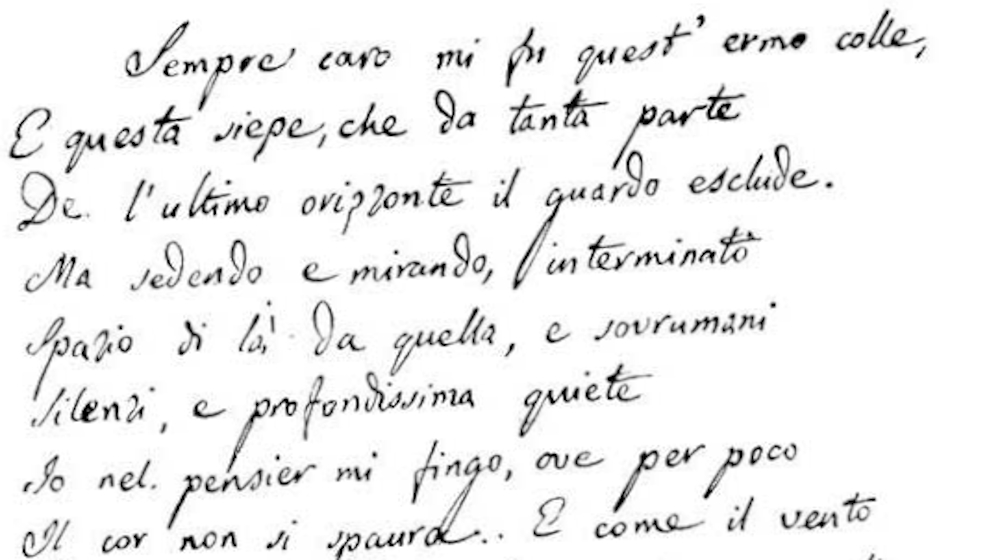 Sempre caro mi fu quest' ermo colle,
E questa siepe, che da tanta parte
De l'ultimo orizzonte il guardo esclude.
Ma sedendo e mirando, interminato
Spazio di là da quella, e sovrumani
Silenzi, e profondissima quiete
Io nel pensier mi fingo, ove per poco
Il cor non si spaura.. E come il vento